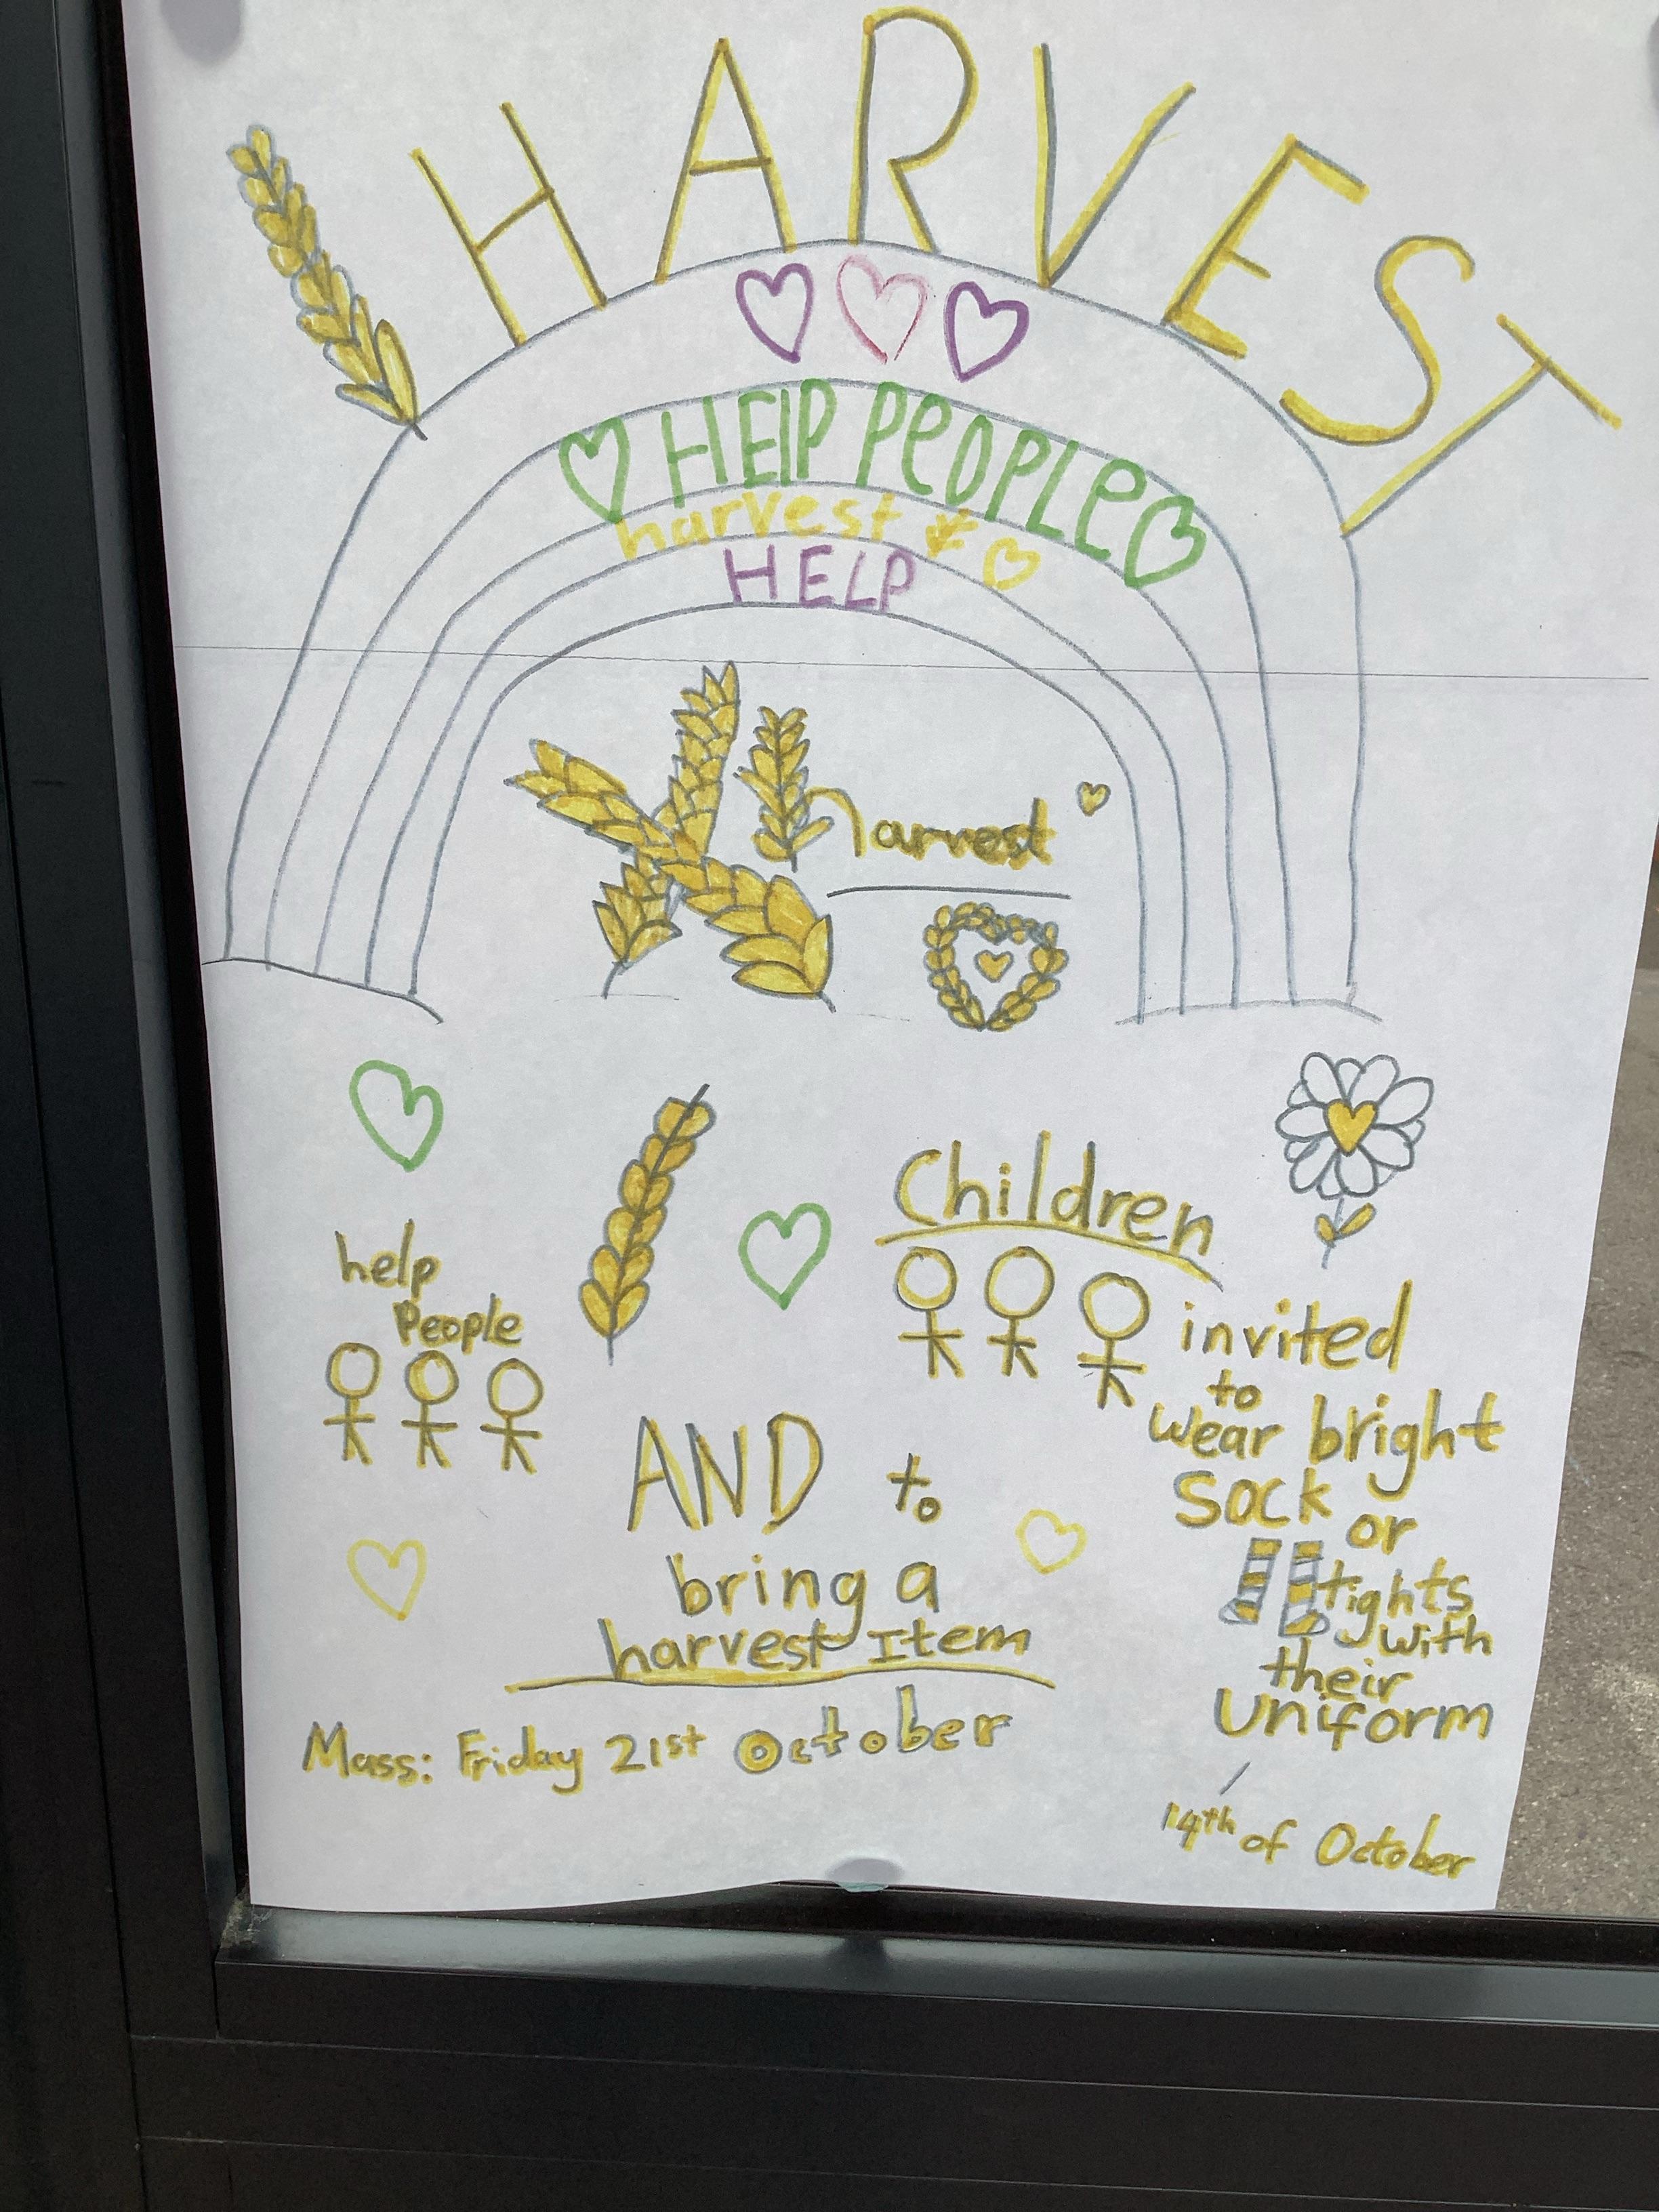 HARVEST
HElP PeOPLe
harvest
HELP
harvest
Children
help
People
invited
to
wear bright
Sock or
tights
with
their
Uniform
AND to
bring a
harvest Item
Mass: Friday 21st October
14th of October